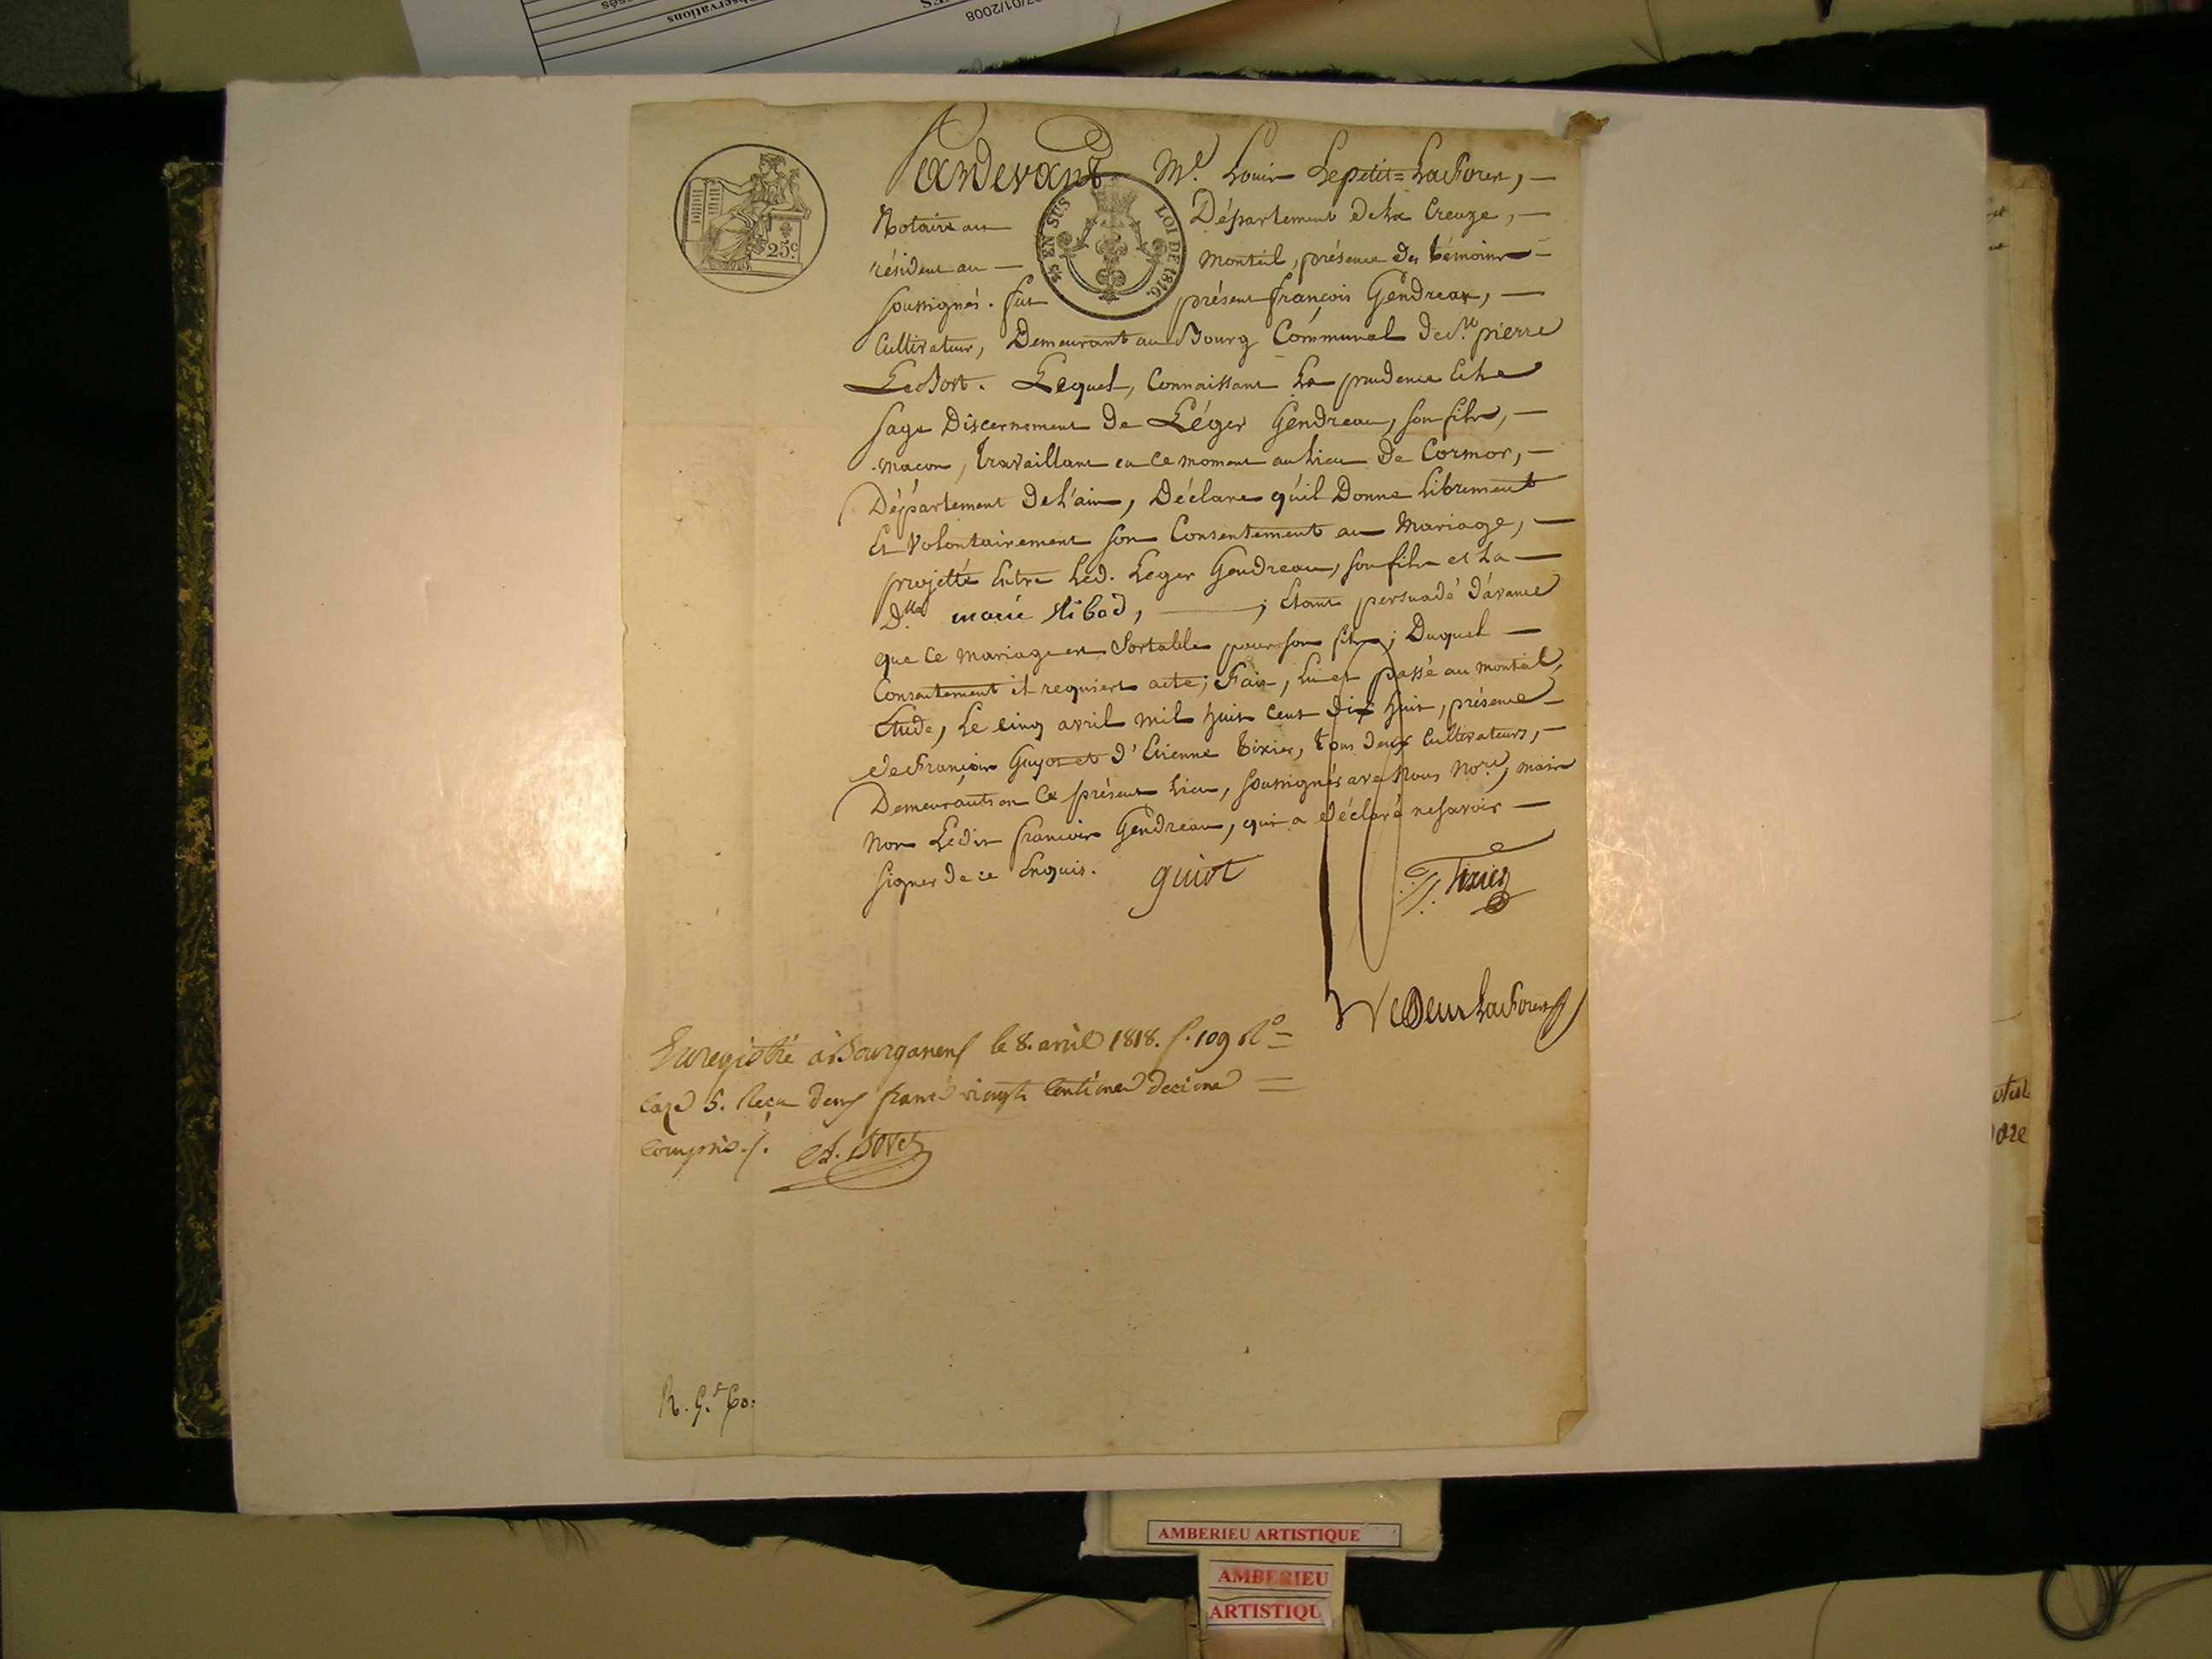 27/01/2008
Observations
Pardevant Me. Louis Lepetit=Laforest, —
Notaire au Département de la Creuze, —
résident au — Monteil, présence des témoins —
soussignés. fut présent françois Gendreau, —
Cultivateur, Demeurant au Bourg Communal de St. pierre
Lebost. Lequel, Connaissant La prudence Et Le
sage Discernement de Léger Gendreau, son fils, —
macon, travaillant en ce moment au Lieu de Cormor, —
Département de L'ain, Déclare qu'il Donne Librement
Et Volontairement son Consentement au Mariage, —
projetté Entre Led. Leger Gendreau, son fils et La —
Dlle marie Ribod, ——; Etant persuadé d'avance
que Ce mariage est Sortable pour son fils; Duquel —
Consentement il requiert acte; Fait, Lu et passé au monteil,
Etude, Le cinq avril mil huit cent dix huit, présence —
de François Guyot et d'Etienne tixier, tous deux Cultivateurs, —
Demeurants en Ce présent Lieu, soussignés avec Nous Nore, mais
Non Ledit françois Gendreau, qui a déclaré ne savoir —
signer de ce Enquis. guiot
E. Tixier
Laforest
Enregistré à Bourganeuf le 8. avril 1818. f. 109 Ro =
case 5. Reçu deux francs vingt Centimes decime =
compris./.
25 c.
25 EN SUS LOI DE 1816.
AMBERIEU ARTISTIQUE
AMBERIEU
ARTISTIQU